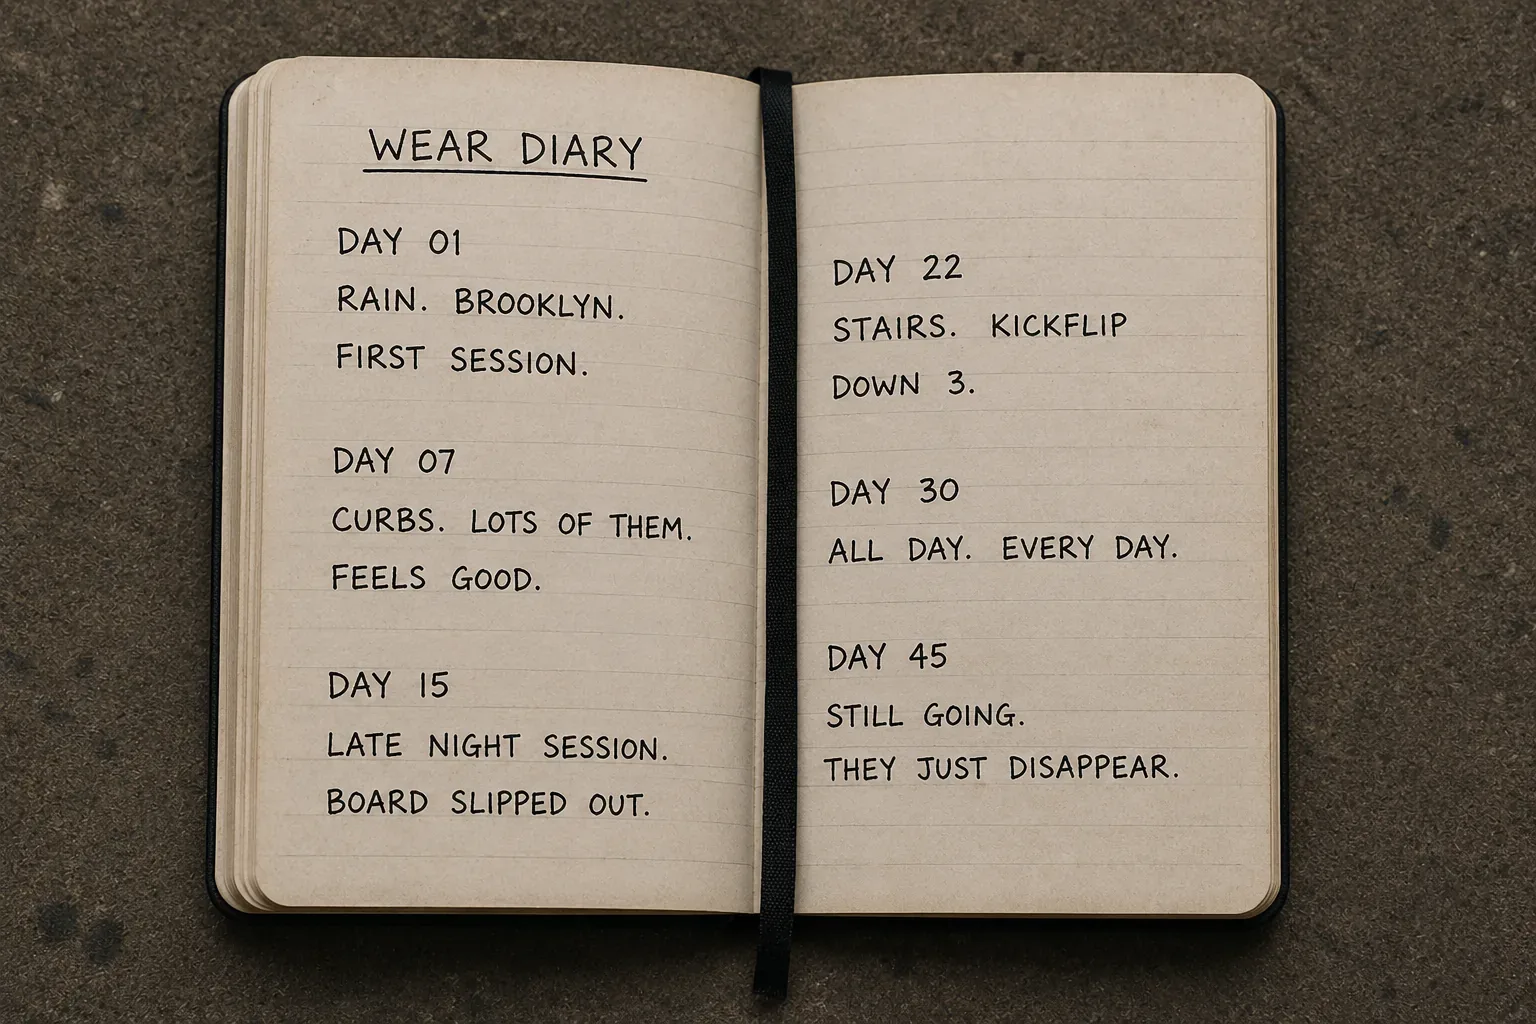 WEAR DIARY
DAY 01
RAIN. BROOKLYN.
FIRST SESSION.
DAY 07
CURBS. LOTS OF THEM.
FEELS GOOD.
DAY 15
LATE NIGHT SESSION.
BOARD SLIPPED OUT.
DAY 22
STAIRS. KICKFLIP
DOWN 3.
DAY 30
ALL DAY. EVERY DAY.
DAY 45
STILL GOING.
THEY JUST DISAPPEAR.